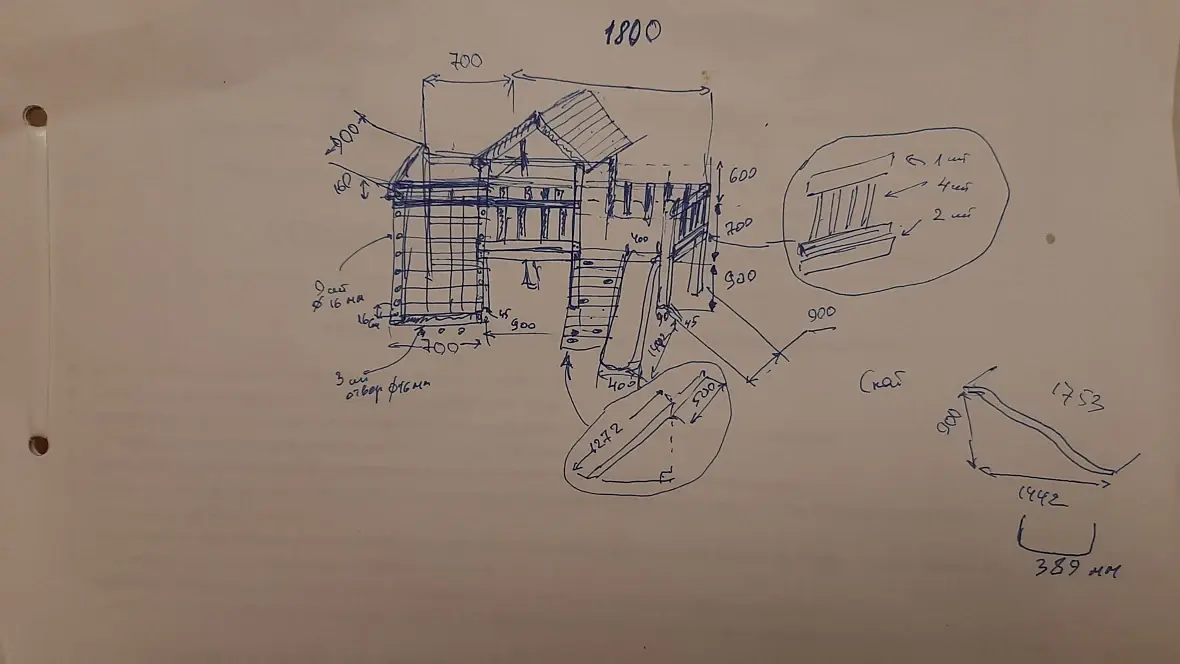 1800
700
900
160
600
1 шт
4 шт
2 шт
700
400
900
9 шт
ф 16 мм
45
900
90
45
900
700
3 шт
отвор ф16 мм
400
1442
1272
500
Скат
1753
900
1442
389 мм